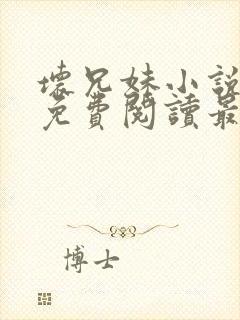 壞兄妹小說
免費閱讀最
博士